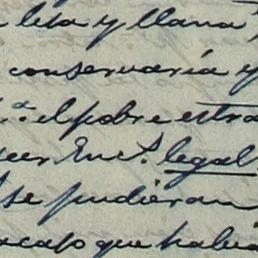 lisa y llana
conservaría y
el pobre estra
legal
se pudieran
acaso que había